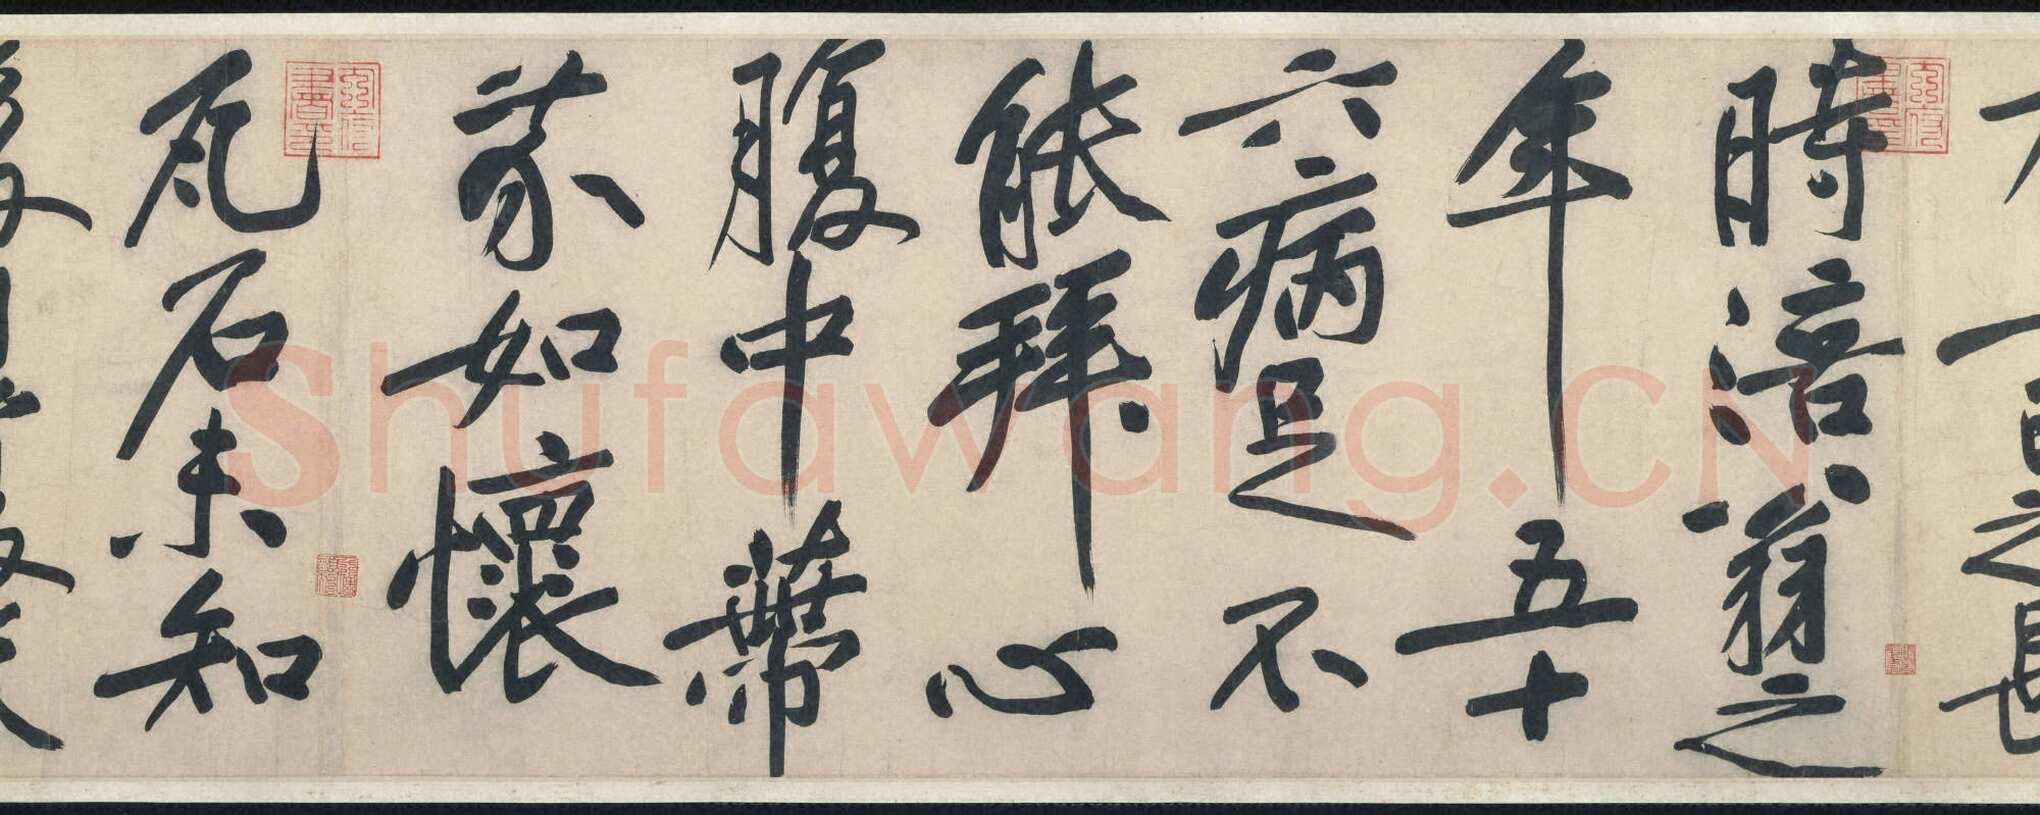 時涪翁之
年五十
六病足不
能拜心
腹中蔕
芥如懷
瓦石未知
Shufawang.CN